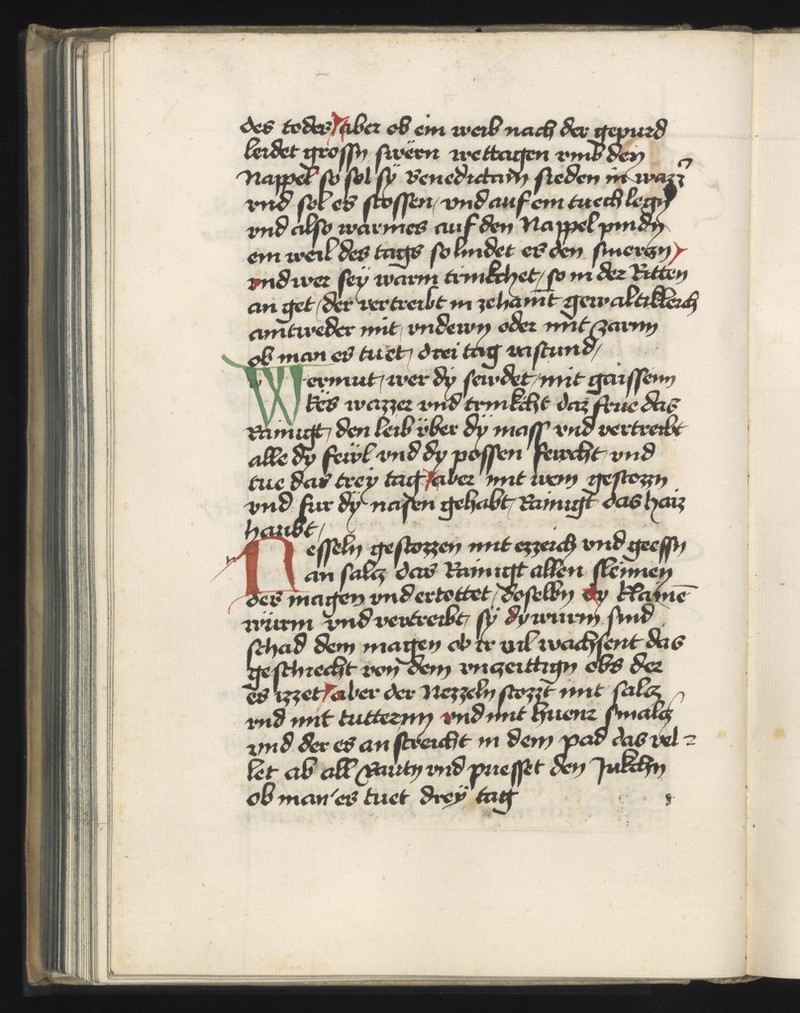 des todes aber ob ein weib nach der gepurd
leidet grossn swern wettagen vmb den
Nappel so sol sy benedictam sieden in wazz
vnd sol es stossen vnd auf ein tuech legn
vnd also warmes auf den Nappel pindn
ein weil des tags so lindet es den smerczn
vnd wer sey warm trinkchet so in der Ritten
an get der vertreibt in zehant gewaltikleich
aintweder mit vndewn oder mit
ob man es tuet drei tag
Wermut wer dy sewdet mit gaissem
kës wazzer vnd trinkcht daz frue das
Rainigt den leib vber dy mass vnd vertreibt
alle dy fewl vnd dy possen fewcht vnd
tue das trey tag aber mit wein gestozzn
vnd fur dy nasen gehabt Rainigt das
haubt
Nesseln gestozzen mit ezzeich vnd geessn
an salcz das Rainigt allen sleimen
des magen vnd ertottet deselbn dy klainē
würm vnd vertreibt sy dy würm sind
schad dem magen ob ir vil wachsent das
geschiecht von dem vnzeittign obs der
es izzet aber der Nezzeln stozzt mit salcz
vnd mit tutterm vnd mit huenr smalcz
vnd der es an streicht in dem pad das vel
let ab all Rautn vnd puesset den Jukchn
ob man es tuet dreÿ tag